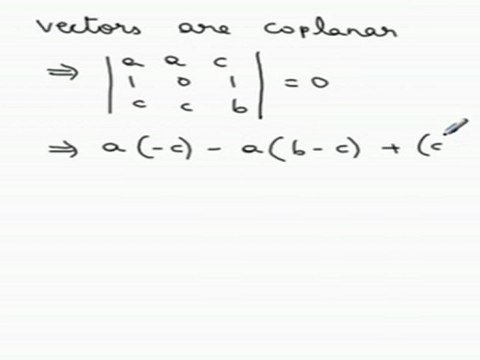 vectors are coplanar
⇒ | a a c |
| 1 0 1 | = 0
| c c b |
⇒ a (-c) - a (b - c) + (c